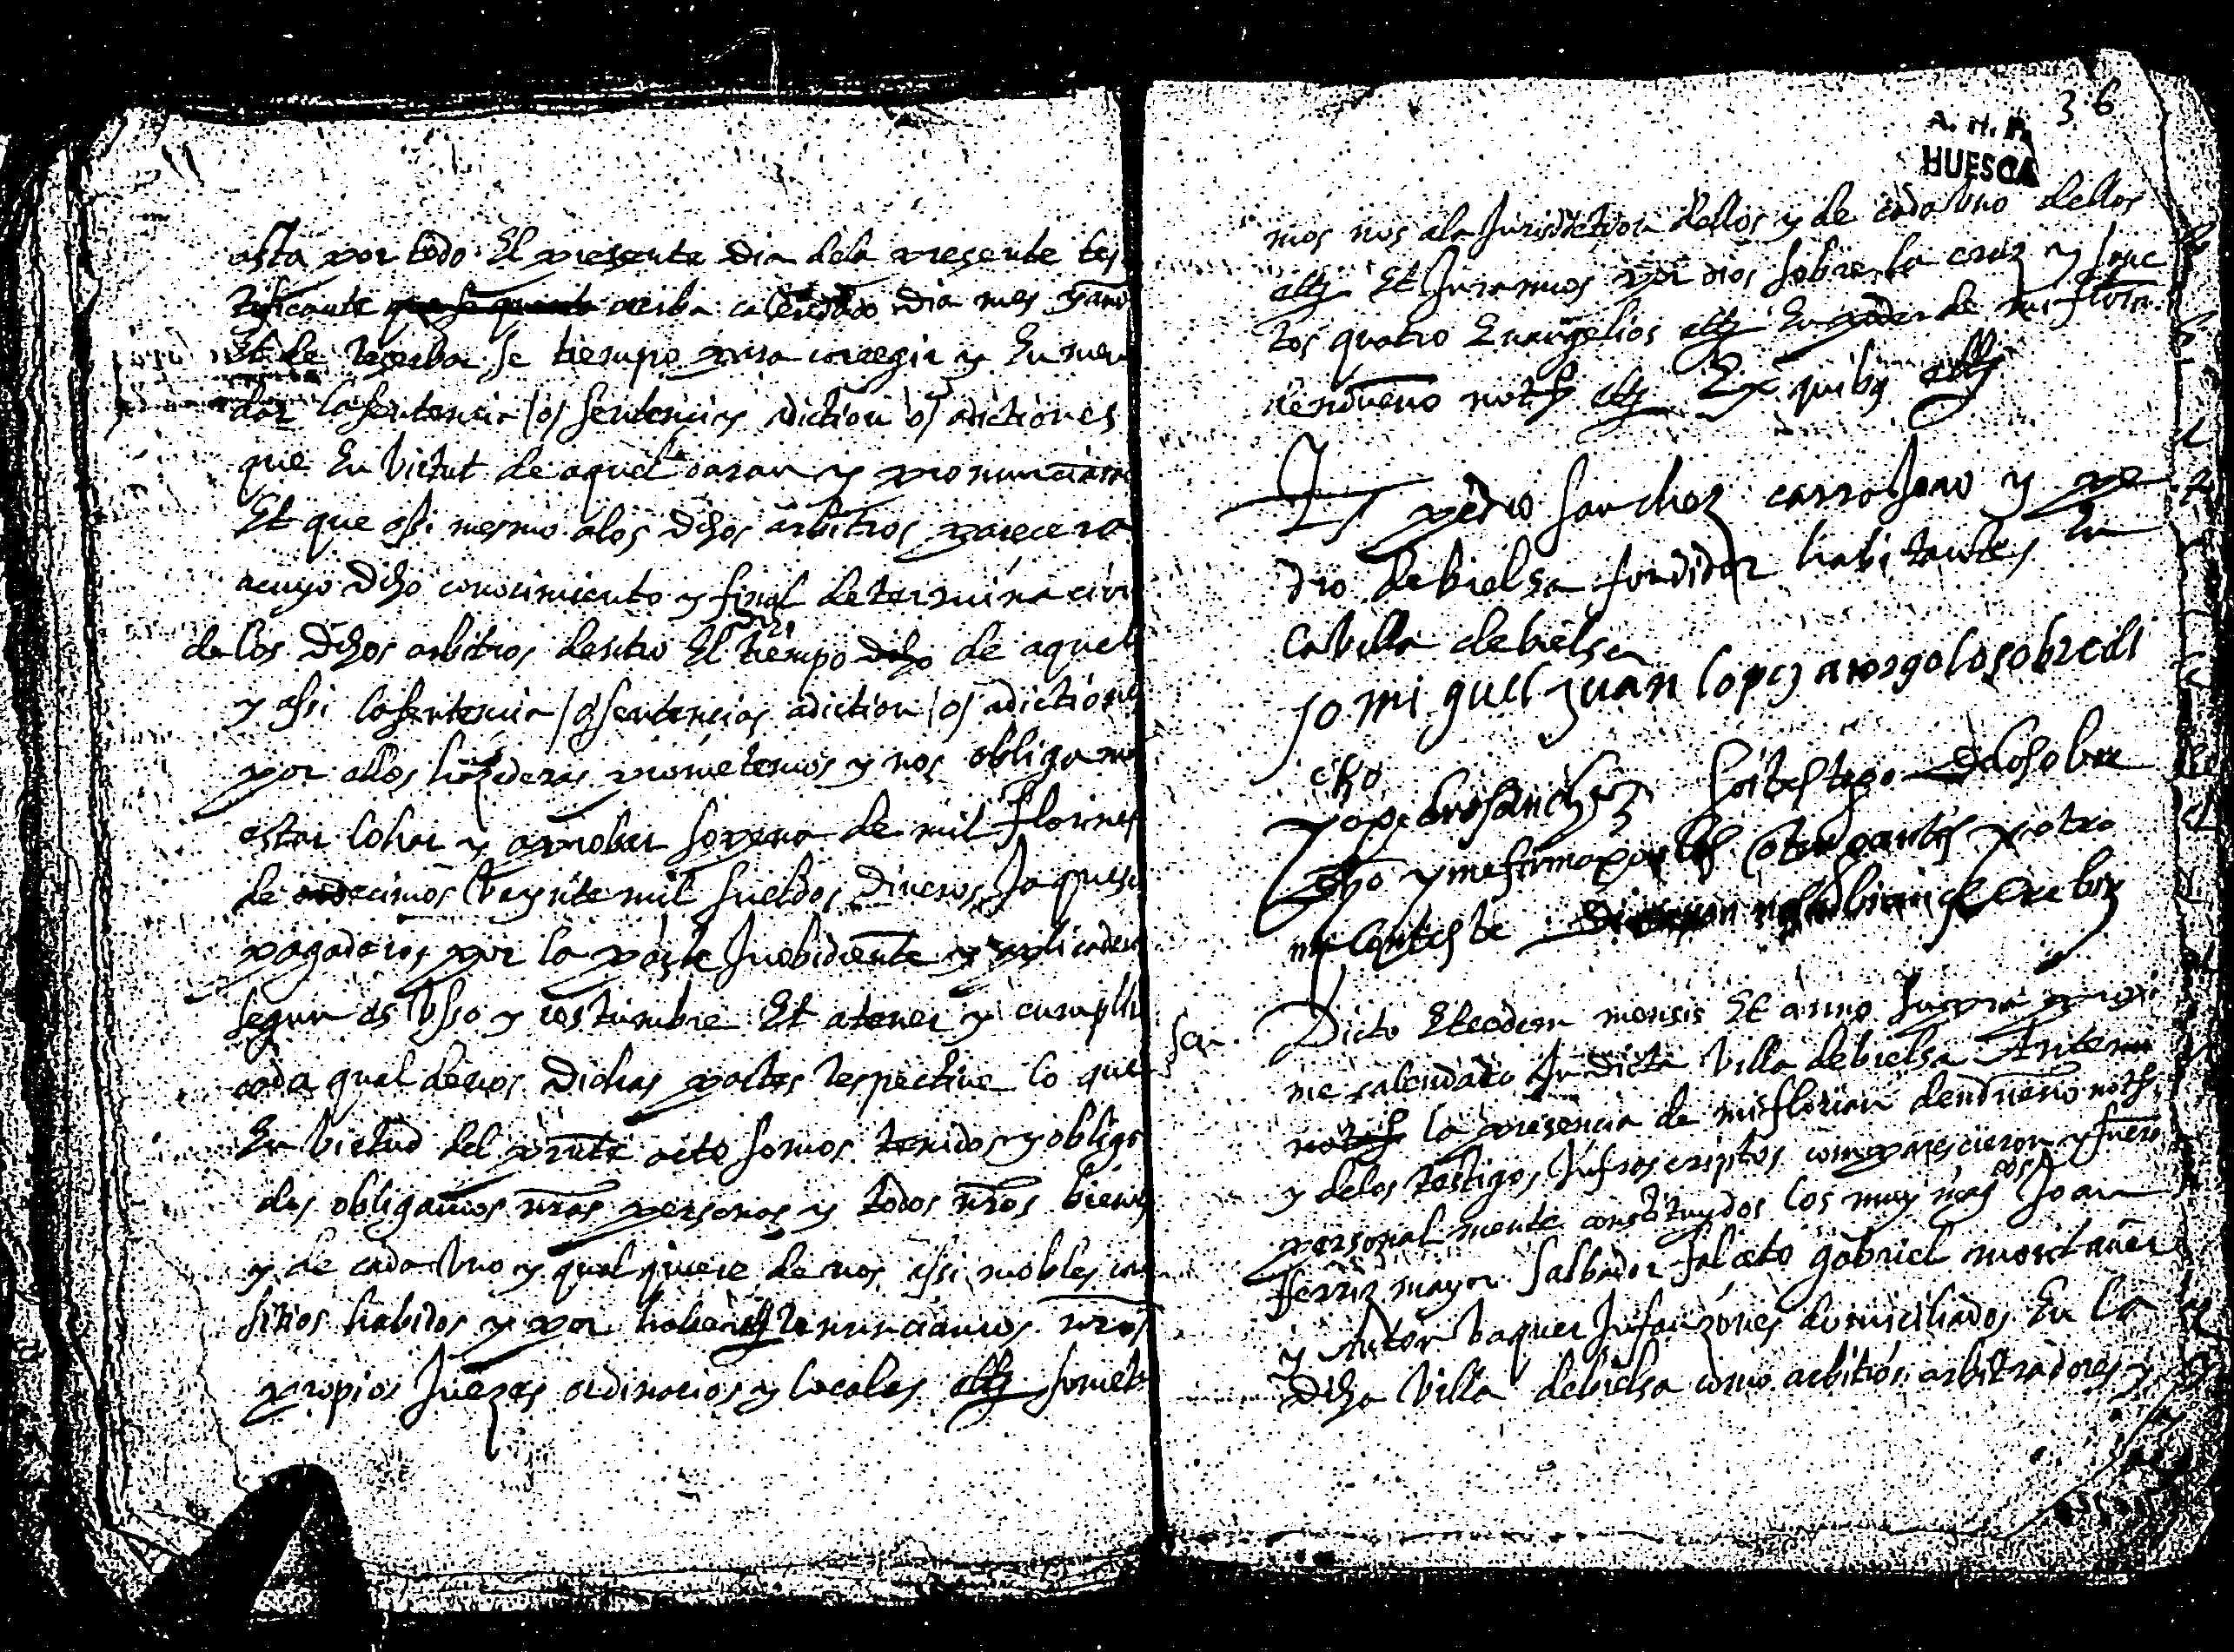 asta por todo El presente dia dela presente tes
tificante que se quenta arriba calendado dia mes y año
Et de reserbar se tiempo para corregir y Enmen
dar la sentencia /o/ sentencias adiction /o/ adictiones
que En Virtut de aquel daran y pronunciaran
Et que assi mesmo a los dhos arbitros parecera
a cuyo dho conocimiento y final determinacion
de los dhos arbitros dentro El tiempo dho de aquel
y assi la sentencia /o/ sentencias adiction /o/ adictiones
por ellos hazederas prometemos y nos obligamos
estar lohar y aprobar so pena de mil florines
de decimos Veynte mil sueldos dineros Jaqueses
pagaderos por la parte Inobidiente y aplicaderos
segun es Usso y costumbre Et a tener y cumplir
cada qual de nos dichas partes respective lo que
En Virtud del pnte acto somos tenidos y obliga
dos obligamos nras personas y todos nros bienes
y de cada Uno y qual quiere de nos assi mobles como
sitios habidos y por haber etc renunciamos nros
propios Juezes ordinarios y locales etc somete
36
A. H. P.
HUESCA
mos nos a la Jurisdiction dellos y de cada Uno dellos
etc Et Juramos por dios sobre la cruz y sanc
tos quatro Evangelios etc En poder de mi florian
dendueno notº etc Ex quibus etc
Ts pedro sanchez carrossano y pe
dro de bielsa fundidor habitantes En
la Villa de bielsa
yo mi guel juan lopez atorgo lo sobredi
cho
yo pedro sanchez soi testigo de lo sobre
dho y me firmo por los otorgantes y otro
mi conteste que dixeron no sabian escrebir
Sen. Dicto Et eodem mensis Et anno supra proxi
me calendato In dicta Villa de bielsa Ante mi
notº la presencia de mi florian dendueno notº
y de los testigos Infrascriptos comparescieron y fueron
personalmente constituydos los muy magcos Joan
ferriz mayor Salbador falceto gabriel montaner
y Anton baquer Infanzones domiciliados En la
dha Villa de bielsa como arbitros arbitradores y